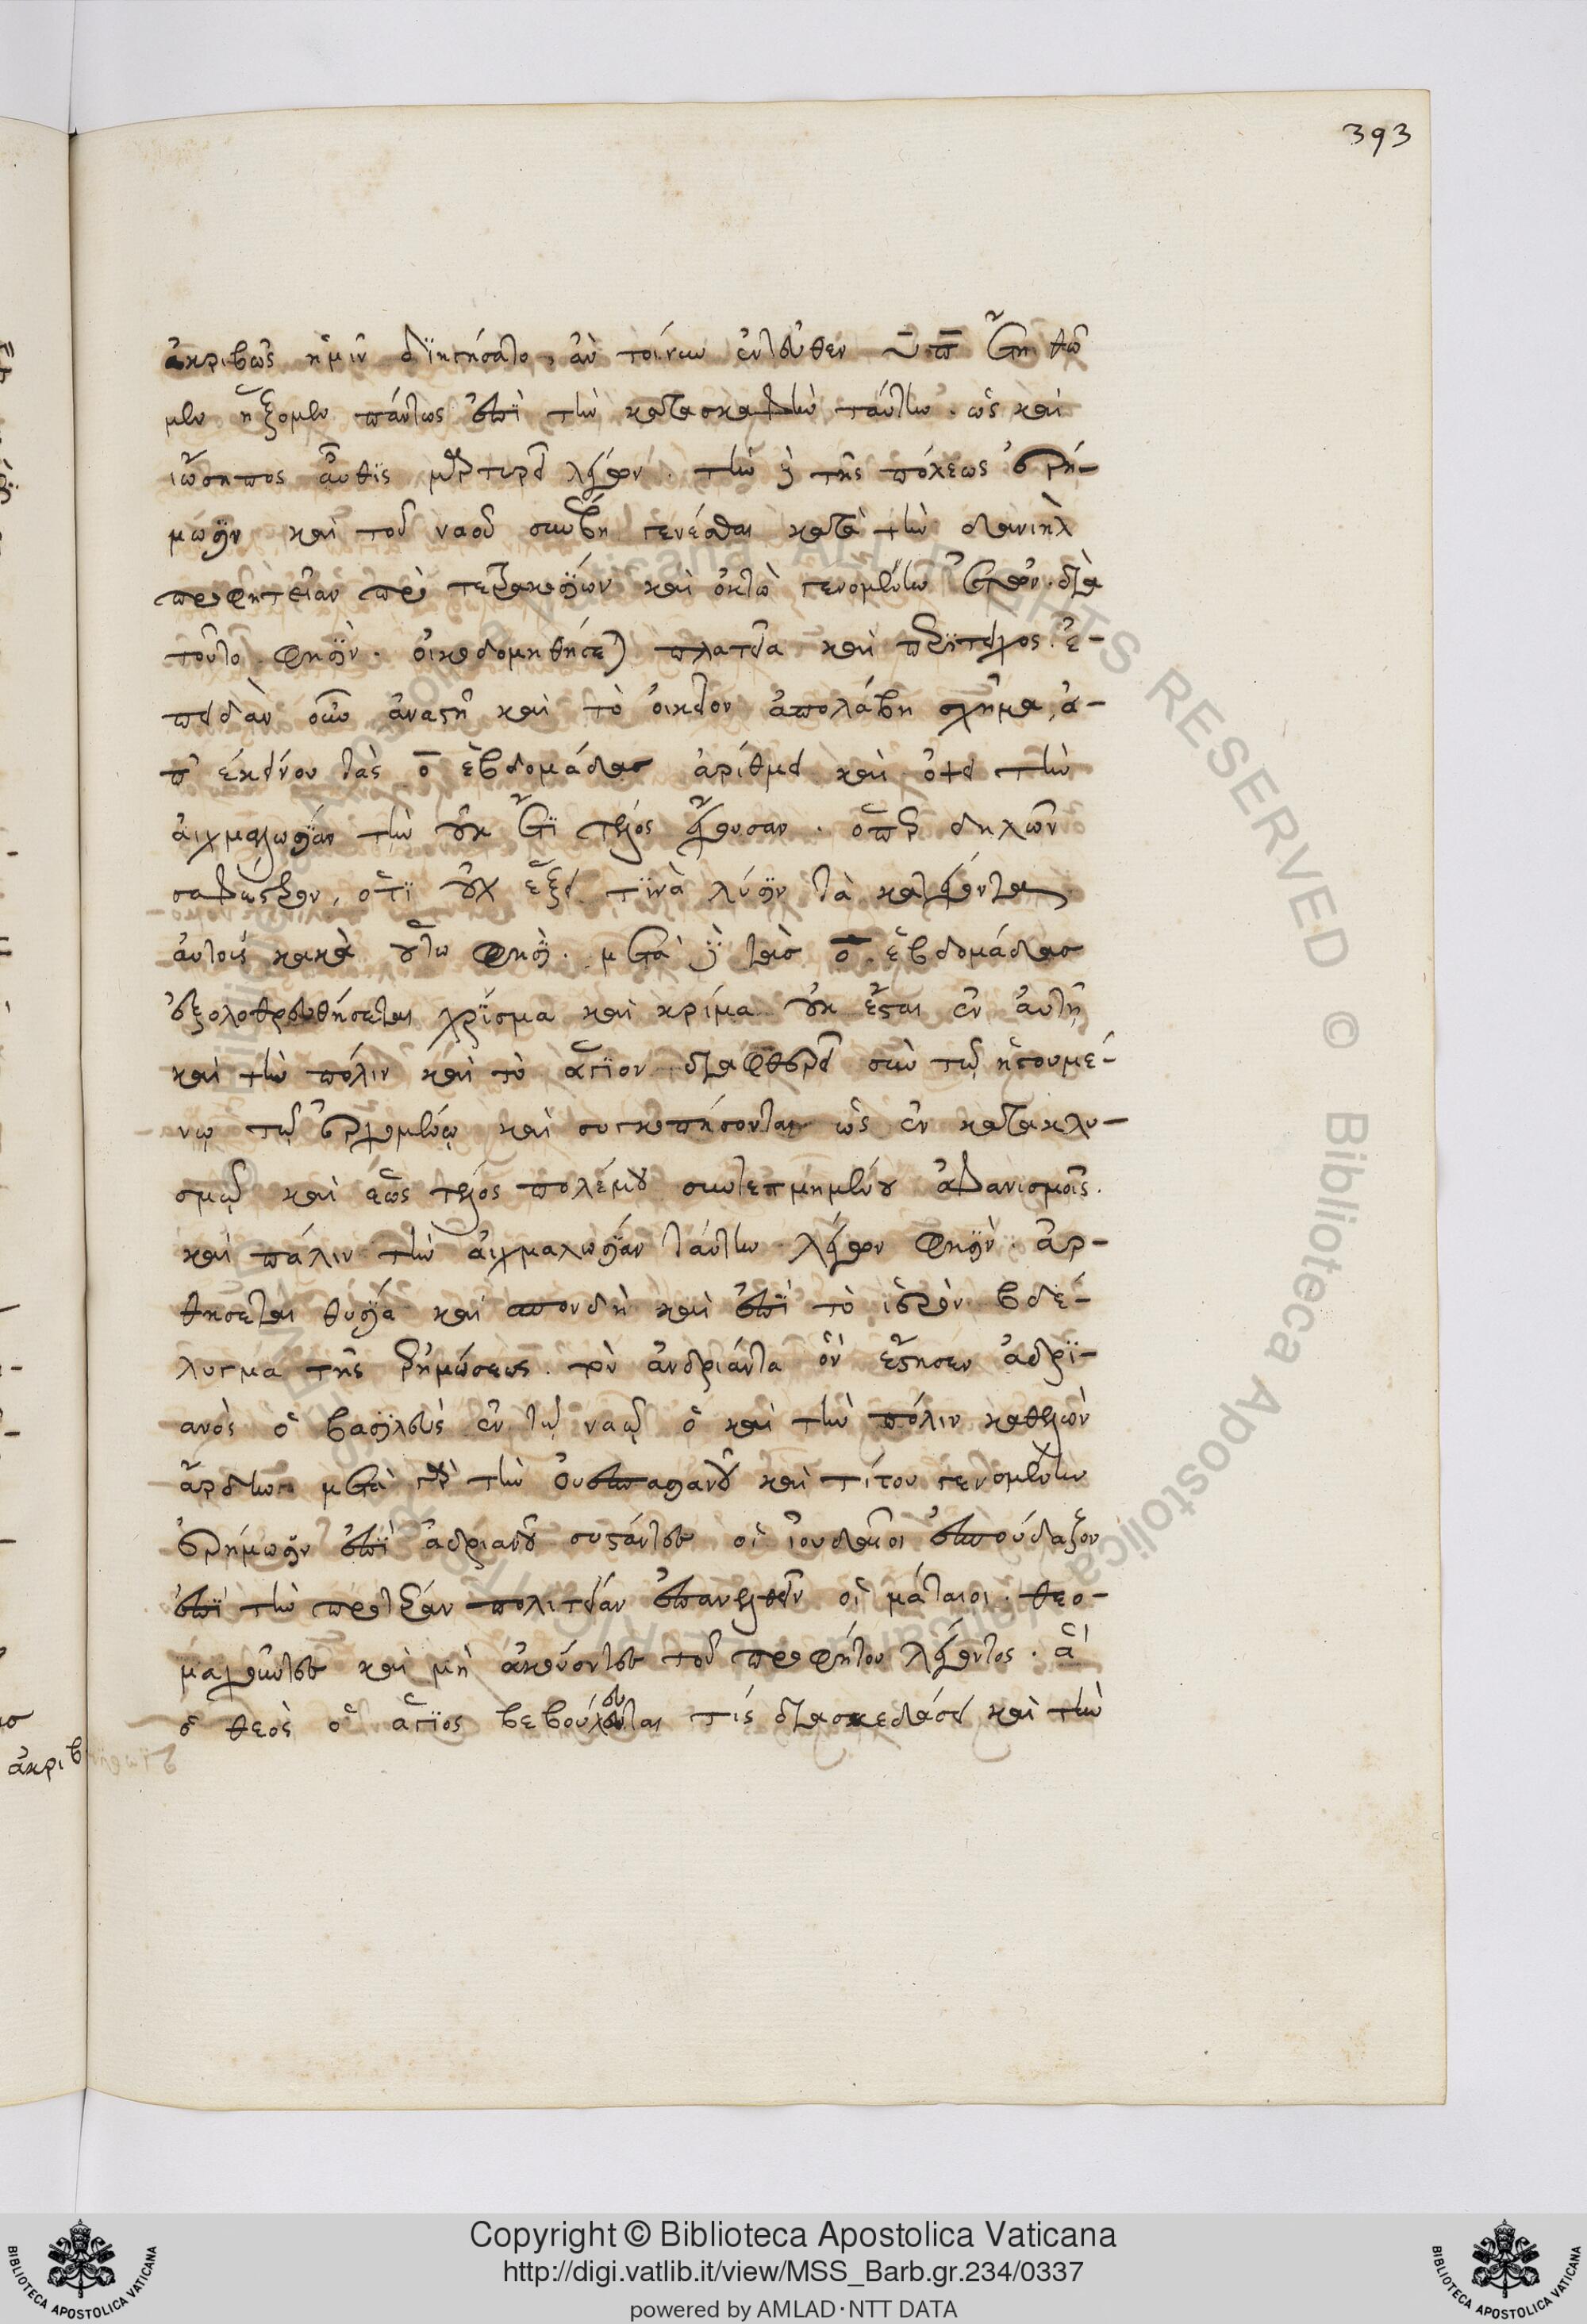 393
ἀκριβῶς ἡμῖν διηγήσατο, ἂν τοίνυν ἐντεῦθεν υ̅π̅ ἔτη θῶ
μεν ἥξομεν πάντως ἐπὶ τὴν κατασκαφὴν ταύτην. ὡς καὶ
ἰώσηπος αὖθις μαρτυρεῖ λέγων. τὴν δὲ τῆς πόλεως ἐρή-
μωσιν καὶ τοῦ ναοῦ συνέβη γενέσθαι κατὰ τὴν δανιὴλ
προφητείαν πρὸ τετρακοσίων καὶ ὀκτὼ γενομένην ἐτῶν. διὰ
τοῦτο φησὶν. οἰκοδομηθήσεται πλατεῖα καὶ περίτειχος. ἐ-
πειδὰν οὖν ἀναστῆ καὶ τὸ οἰκεῖον ἀπολάβη σχῆμα, ἀ-
π' ἐκείνου τὰς ο̅ ἑβδομάδας ἀρίθμει καὶ ὄψει τὴν
αἰχμαλωσίαν τὴν οὐκ ἔτι τέλος ἔχουσαν. ὅπερ δηλῶν
σαφέστερον, ὅτι οὐχ ἕξει τινὰ λύσιν τὰ κατέχοντα
αὐτοὺς κακὰ οὕτω φησί. μετὰ δὲ τὰς ο̅ ἑβδομάδας
ἐξολοθρευθήσεται χρίσμα καὶ κρίμα οὐκ ἔσται ἐν αὐτῆ
καὶ τὴν πόλιν καὶ τὸ ἅγιον διαφθερεῖ σὺν τῷ ἡγουμέ-
νῳ τῷ ἐρχομένῳ καὶ συγκοπήσονται ὡς ἐν κατακλυ-
σμῷ καὶ ἕως τέλος πολέμου συντετμημένου ἀφανισμοῖς.
καὶ πάλιν τὴν αἰχμαλωσίαν ταύτην λέγων φησὶν. ἀρ-
θήσεται θυσία καὶ σπονδὴ καὶ ἐπὶ τὸ ἱερὸν βδέ-
λυγμα τῆς ἐρημώσεως. τὸν ἀνδριάντα ὃν ἔστησεν ἀδρι-
ανὸς ὁ βασιλεὺς ἐν τῷ ναῷ ὁ καὶ τὴν πόλιν καθελὼν
ἄρδην. μετὰ γὰρ τὴν οὐεσπασιανοῦ καὶ τίτου γενομένην
ἐρήμωσιν ἐπὶ ἀδριανοῦ συστάντες οἱ ἰουδαῖοι ἐσπούδαζον
ἐπὶ τὴν προτέραν πολιτείαν ἐπανελθεῖν οἱ μάταιοι. θεο-
μαχοῦντες καὶ μὴ ἀκούοντες τοῦ προφήτου λέγοντος. ἃ
ὁ θεὸς ὁ ἅγιος βεβούλευται τίς διασκεδάσει καὶ τὴν
ἀκριβ
Copyright © Biblioteca Apostolica Vaticana
http://digi.vatlib.it/view/MSS_Barb.gr.234/0337
powered by AMLAD·NTT DATA